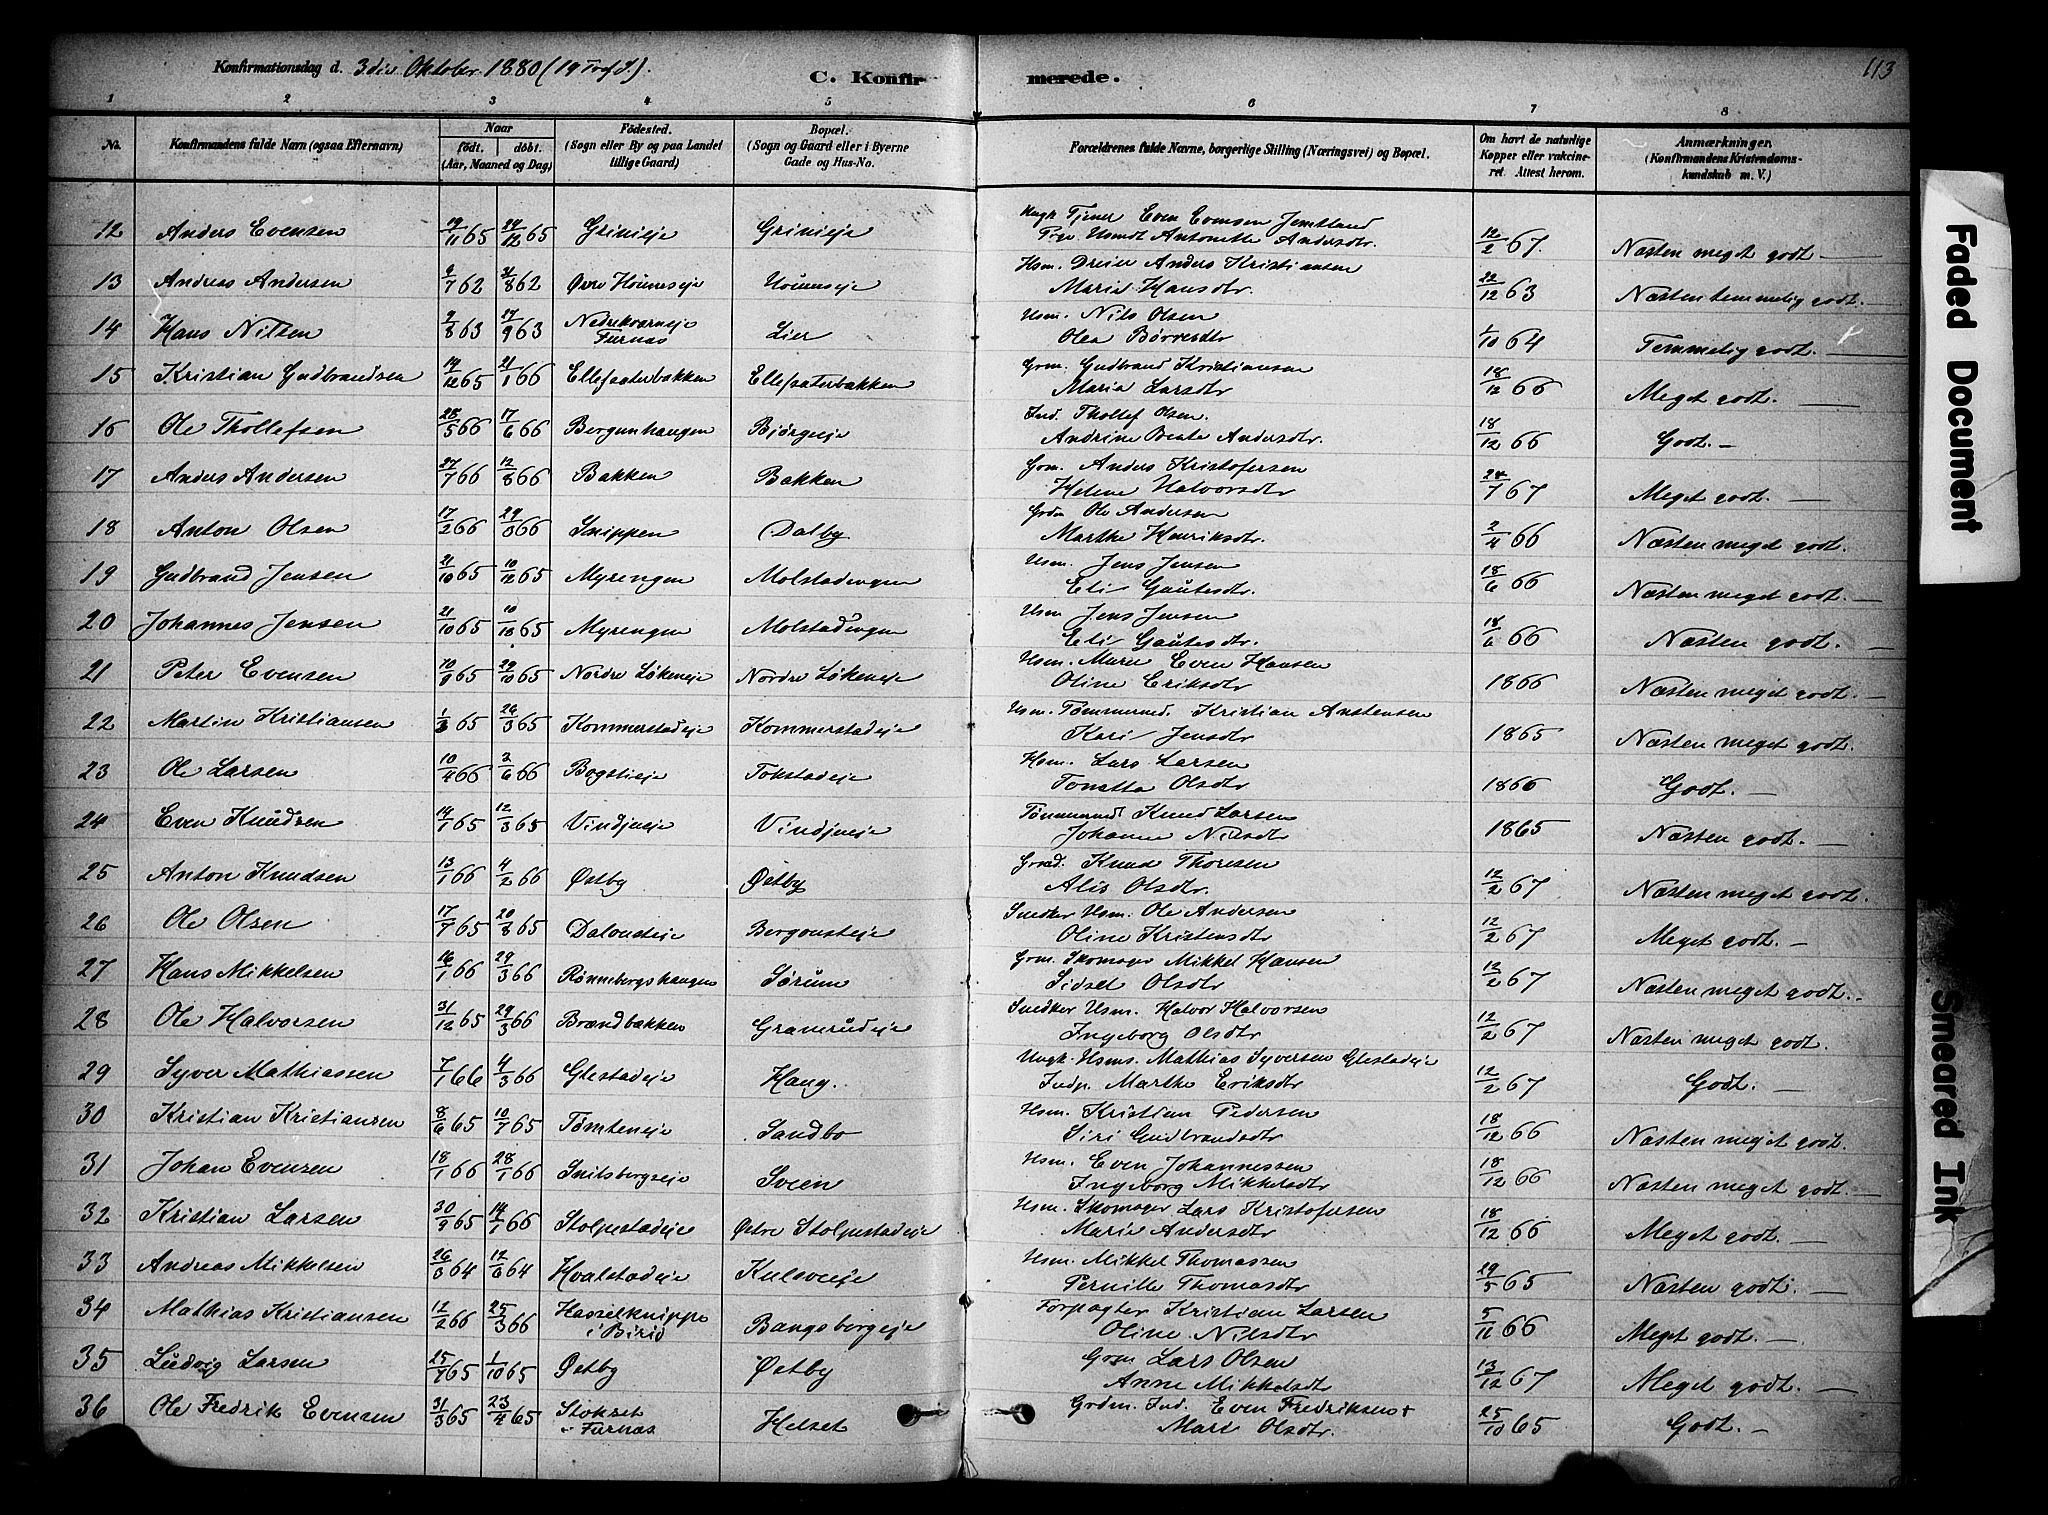 113
Konfirmationsdag d. 3die Oktober 1880 (19 Tref S.).
C. Konfirmerede.
1 2 3 4 5 6 7 8
No. Konfirmandens fulde Navn (ogsaa Efternavn) Naar födt. döbt. (Aar, Maaned og Dag) Födested. (Sogn eller By og paa Landet tillige Gaard) Bopæl. (Sogn og Gaard eller i Byerne Gade og Hus-No. Forældrenes fulde Navne, borgerlige Stilling (Næringsvei) og Bopæl. Om havt de naturlige Kopper eller vakcineret. Attest herom. Anmærkninger. (Konfirmandens Kristendomskundskab m. V.)
12 Anders Evensen 19/11 65 24/12 65 Grinieje Grinieje Ungk Tjener Even Evensen Jemtland
Antonette Andersdtr. 12/2 67. Næsten meget godt. —
13 Andreas Andersen 9/7 62 31/8 62 Øvre Houneseje Houneseje Hsm. Dreier Anders Kristiansen
Marie Hansdtr. 22/12 63 Næsten temmelig godt. —
14 Hans Nilsen 9/8 63 17/9 63 Nedrekværneje
Furnæs Lier Hsm. Nils Olsen
Olea Börresdtr 1/10 64 Temmelig godt. —
15 Kristian Gudbrandsen 19/12 65 21/1 66 Ellefsæterbakken Ellefsæterbakken Grm. Gudbrand Kristiansen
Maria Larsdtr. 18/12 66 Meget godt. —
16 Ole Thollefsen 28/5 66 17/6 66 Bergunhaugen Bjørgeje Ind. Thollef Olsen.
Andrine Beate Andersdtr. 18/12 66 Godt. —
17 Anders Andersen 27/7 66 12/8 66 Bakken Bakken Grm. Anders Kristofersen
Helene Halvorsdtr 24/7 67 Meget godt. —
18 Anton Olsen 17/2 66 29/3 66 Snippen Dalby Grdm Ole Andersen
Marthe Henriksdtr. 2/4 66 Næsten meget godt. —
19 Gudbrand Jensen 21/10 65 10/12 65 Myrengen Molstadengen Hsm. Jens Jensen
Eli Gautesdtr. 18/6 66 Næsten meget godt. —
20 Johannes Jensen 21/10 65 10/10 65 Myrengen Molstadengen Hsm Jens Jensen
Eli Gautesdtr. 18/6 66 Næsten godt. —
21 Peter Evensen 10/9 65 29/10 65 Nordre Løkeneje Nordre Løkeneje Hsm. Murer Even Hansen
Oline Eriksdtr 1866 Næsten meget godt. —
22 Martin Kristiansen 1/3 65 26/3 65 Kommerstadeje Kommerstadeje Hsm. Tømmermd. Kristian Anstensen
Kari Jensdtr 1865 Næsten meget godt.
23 Ole Larsen 10/4 66 3/6 66 Bogstieje Tokstadeje Hsm. Lars Larsen
Tonette Olsdtr 1866 Godt. —
24 Even Knudsen 14/1 65 12/3 65 Vindjueje Vindjueje Tömmermd Knud Larsen
Johanne Nilsdtr 1865 Næsten godt. —
25 Anton Knudsen 13/1 66 4/2 66 Østby Østby Grmd. Knud Thoresen
Alis Olsdtr. 12/2 67 Næsten meget godt.
26 Ole Olsen 17/7 65 20/8 65 Dalousteje Bergousteje Snedker Hsm. Ole Andersen
Oline Kristensdtr 12/2 67 Meget godt. —
27 Hans Mikkelsen 16/1 66 29/3 66 Rønnebergshaugen Sørum Grm. Skomager Mikkel Hansen
Sidsel Olsdtr 12/2 67 Næsten meget godt. —
28 Ole Halvorsen 31/12 65 29/3 66 Brændbakken Gramrudeje Snedker Hsm. Halvor Halvorsen
Ingeborg Olsdtr 12/2 67 Næsten meget godt.
29 Syver Mathiassen 7/1 66 4/3 66 Glestadeje Haug. Ungk. Hsms. Mathias Syversen Glestadeje
Indp. Marthe Eriksdtr 12/2 67 Godt. —
30 Kristian Kristiansen 8/6 65 10/7 65 Tømteneje Sandbo Hsm. Kristian Pedersen
Siri Gudbrandsdtr 18/12 66 Næsten meget godt.
31 Johan Evensen 18/1 66 28/1 66 Snilsbergseje Sveen Hsm. Even Johannessen
Ingeborg Mikkelsdtr 18/12 66 Næsten meget godt. —
32 Kristian Larsen 30/9 65 14/1 66 Stolpestadeje Østre Stolpestadeje Hsm. Skomager Lars Kristofersen
Marie Andersdtr 18/12 66 Meget godt. —
33 Andreas Mikkelsen 26/3 64 12/6 64 Hvalstadeje Kulsveeje Hsm. Mikkel Thomassen
Pernille Thomasdtr 29/5 65 Næsten godt. —
34 Mathias Kristiansen 12/2 66 25/3 66 Hasselknippe
i Birid Bangsbergeje Forpagter Kristian Larsen
Oline Nilsdtr 5/11 66 Meget godt. —
35 Ludvig Larsen 25/7 65 1/10 65 Østby Østby Grm Lars Olsen
Anne Mikkelsdtr 13/12 67 Meget godt. —
36 Ole Fredrik Evensen 31/3 65 23/4 65 Stokset
Furnæs Helset Grdm. Ind. Even Fredriksen +
Mari Olsdtr. 25/10 65 Godt. —
Faded Document
Smeared Ink